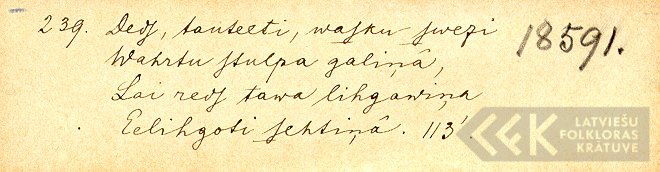 239. Dedſ, tauteeti, waſku ſwezi 18591.
Wahrtu ſtulpa galiņâ,
Lai redſ tawa lihgawiņa
Eelihgoti ſehtiņâ. 113'
LATVIEŠU
FOLKLORAS
KRĀTUVE